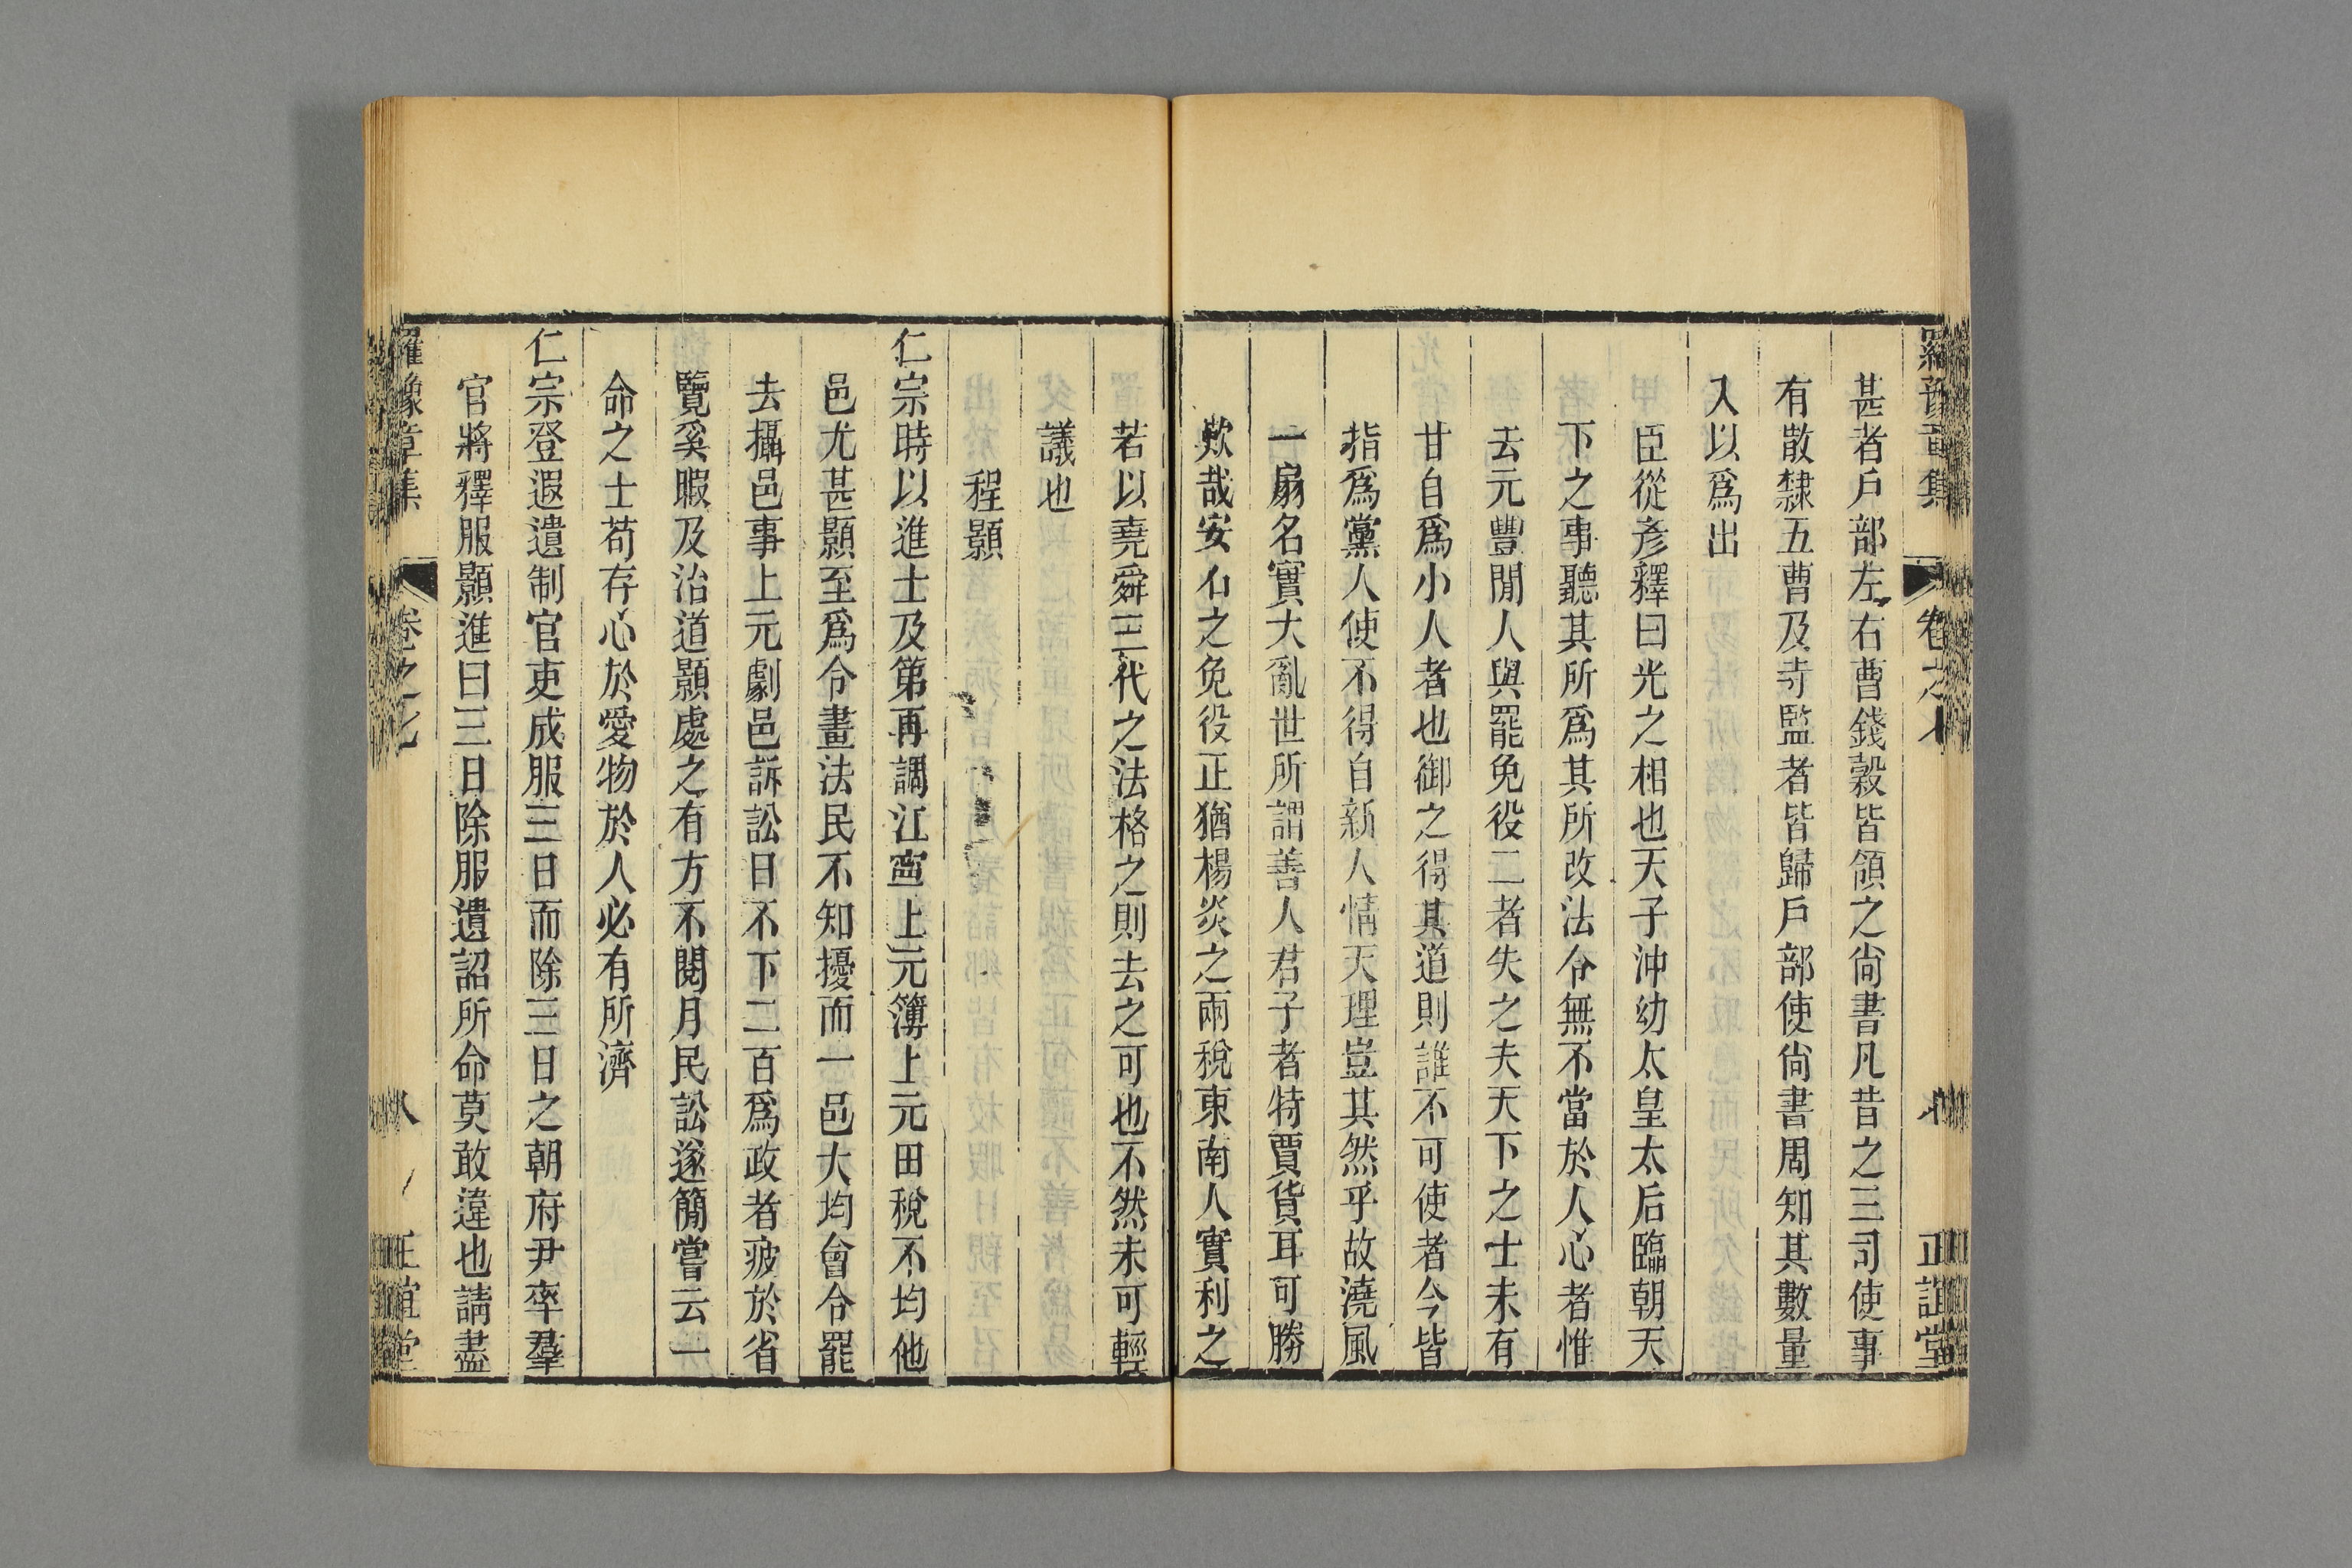 甚者戶部左右曹錢穀皆領之尙書凡昔之三司使事
有散隸五曹及寺監者皆歸戶部使尙書周知其數量
入以爲出
臣從彥釋曰光之相也天子沖幼太皇太后臨朝天
下之事聽其所爲其所改法令無不當於人心者惟
去元豐閒人與罷免役二者失之夫天下之士未有
甘自爲小人者也御之得其道則誰不可使者今皆
指爲黨人使不得自新人情天理豈其然乎故澆風
一扇名實大亂世所謂善人君子者特賈貨耳可勝
歎哉安石之免役正猶楊炎之兩稅東南人實利之
若以堯舜三代之法格之則去之可也不然未可輕
議也
程顥
仁宗時以進士及第再調江寧上元簿上元田稅不均他
邑尤甚顥至爲令畫法民不知擾而一邑大均會令罷
去攝邑事上元劇邑訴訟日不下二百爲政者疲於省
覽奚暇及治道顥處之有方不閱月民訟遂簡嘗云一
命之士苟存心於愛物於人必有所濟
仁宗登遐遺制官吏成服三日而除三日之朝府尹率羣
官將釋服顥進曰三日除服遺詔所命莫敢違也請盡
羅豫章集 卷之七 八 正誼堂